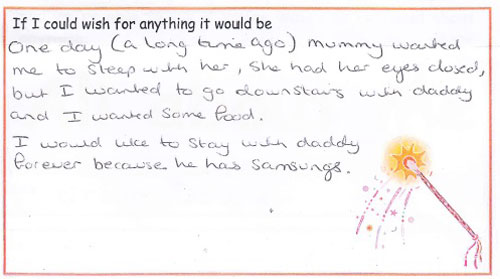 If I could wish for anything it would be
One day (a long time ago) mummy wanted
me to sleep with her, she had her eyes closed,
but I wanted to go downstairs with daddy
and I wanted some food.
I would like to stay with daddy
forever because he has Samsungs.